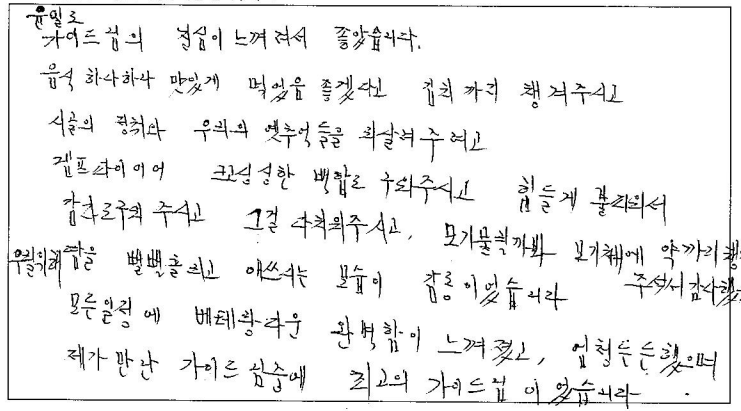 윤밀로
가이드님의 열심이 느껴져서 좋았습니다.
음식 하나하나 맛있게 먹었음 좋겠다고 김치까지 챙겨주시고
시골의 정취와 우리의 옛추억들을 되살려주려고
캠프파이어 싱싱한 백합도 구워주시고 힘들게 불피워서
감자도구워 주시고 그걸 다까워주시고, 모기물릴까봐 모기채에 약까지
우릴위해 땀을 뻘뻘흘리고 애쓰시는 모습이 감동이었습니다 주셔서 감사했
모든일정에 베테랑다운 완벽함이 느껴졌고, 엄청든든했으며
제가 만난 가이드님중에 최고의 가이드님이었습니다.